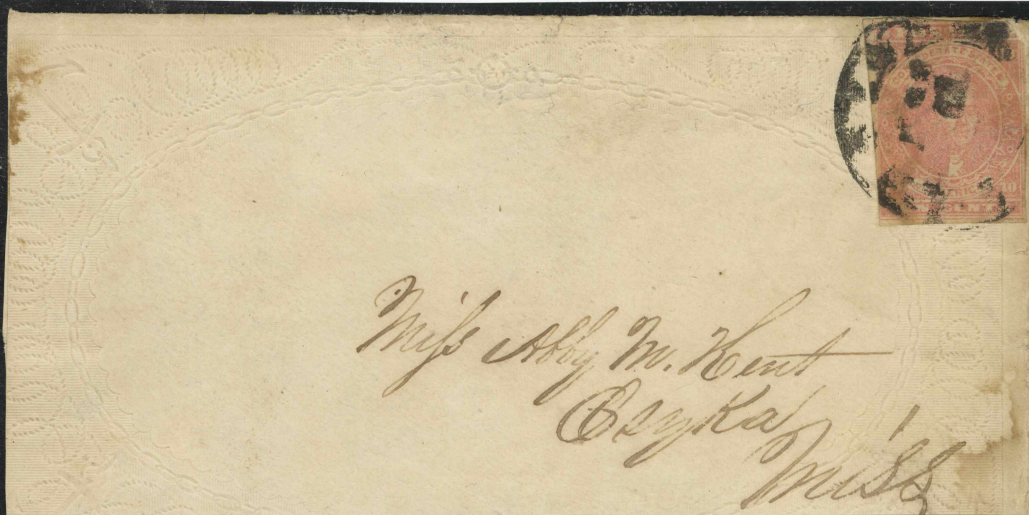 Miss Abby M. Kent
Osyka
Miss
10